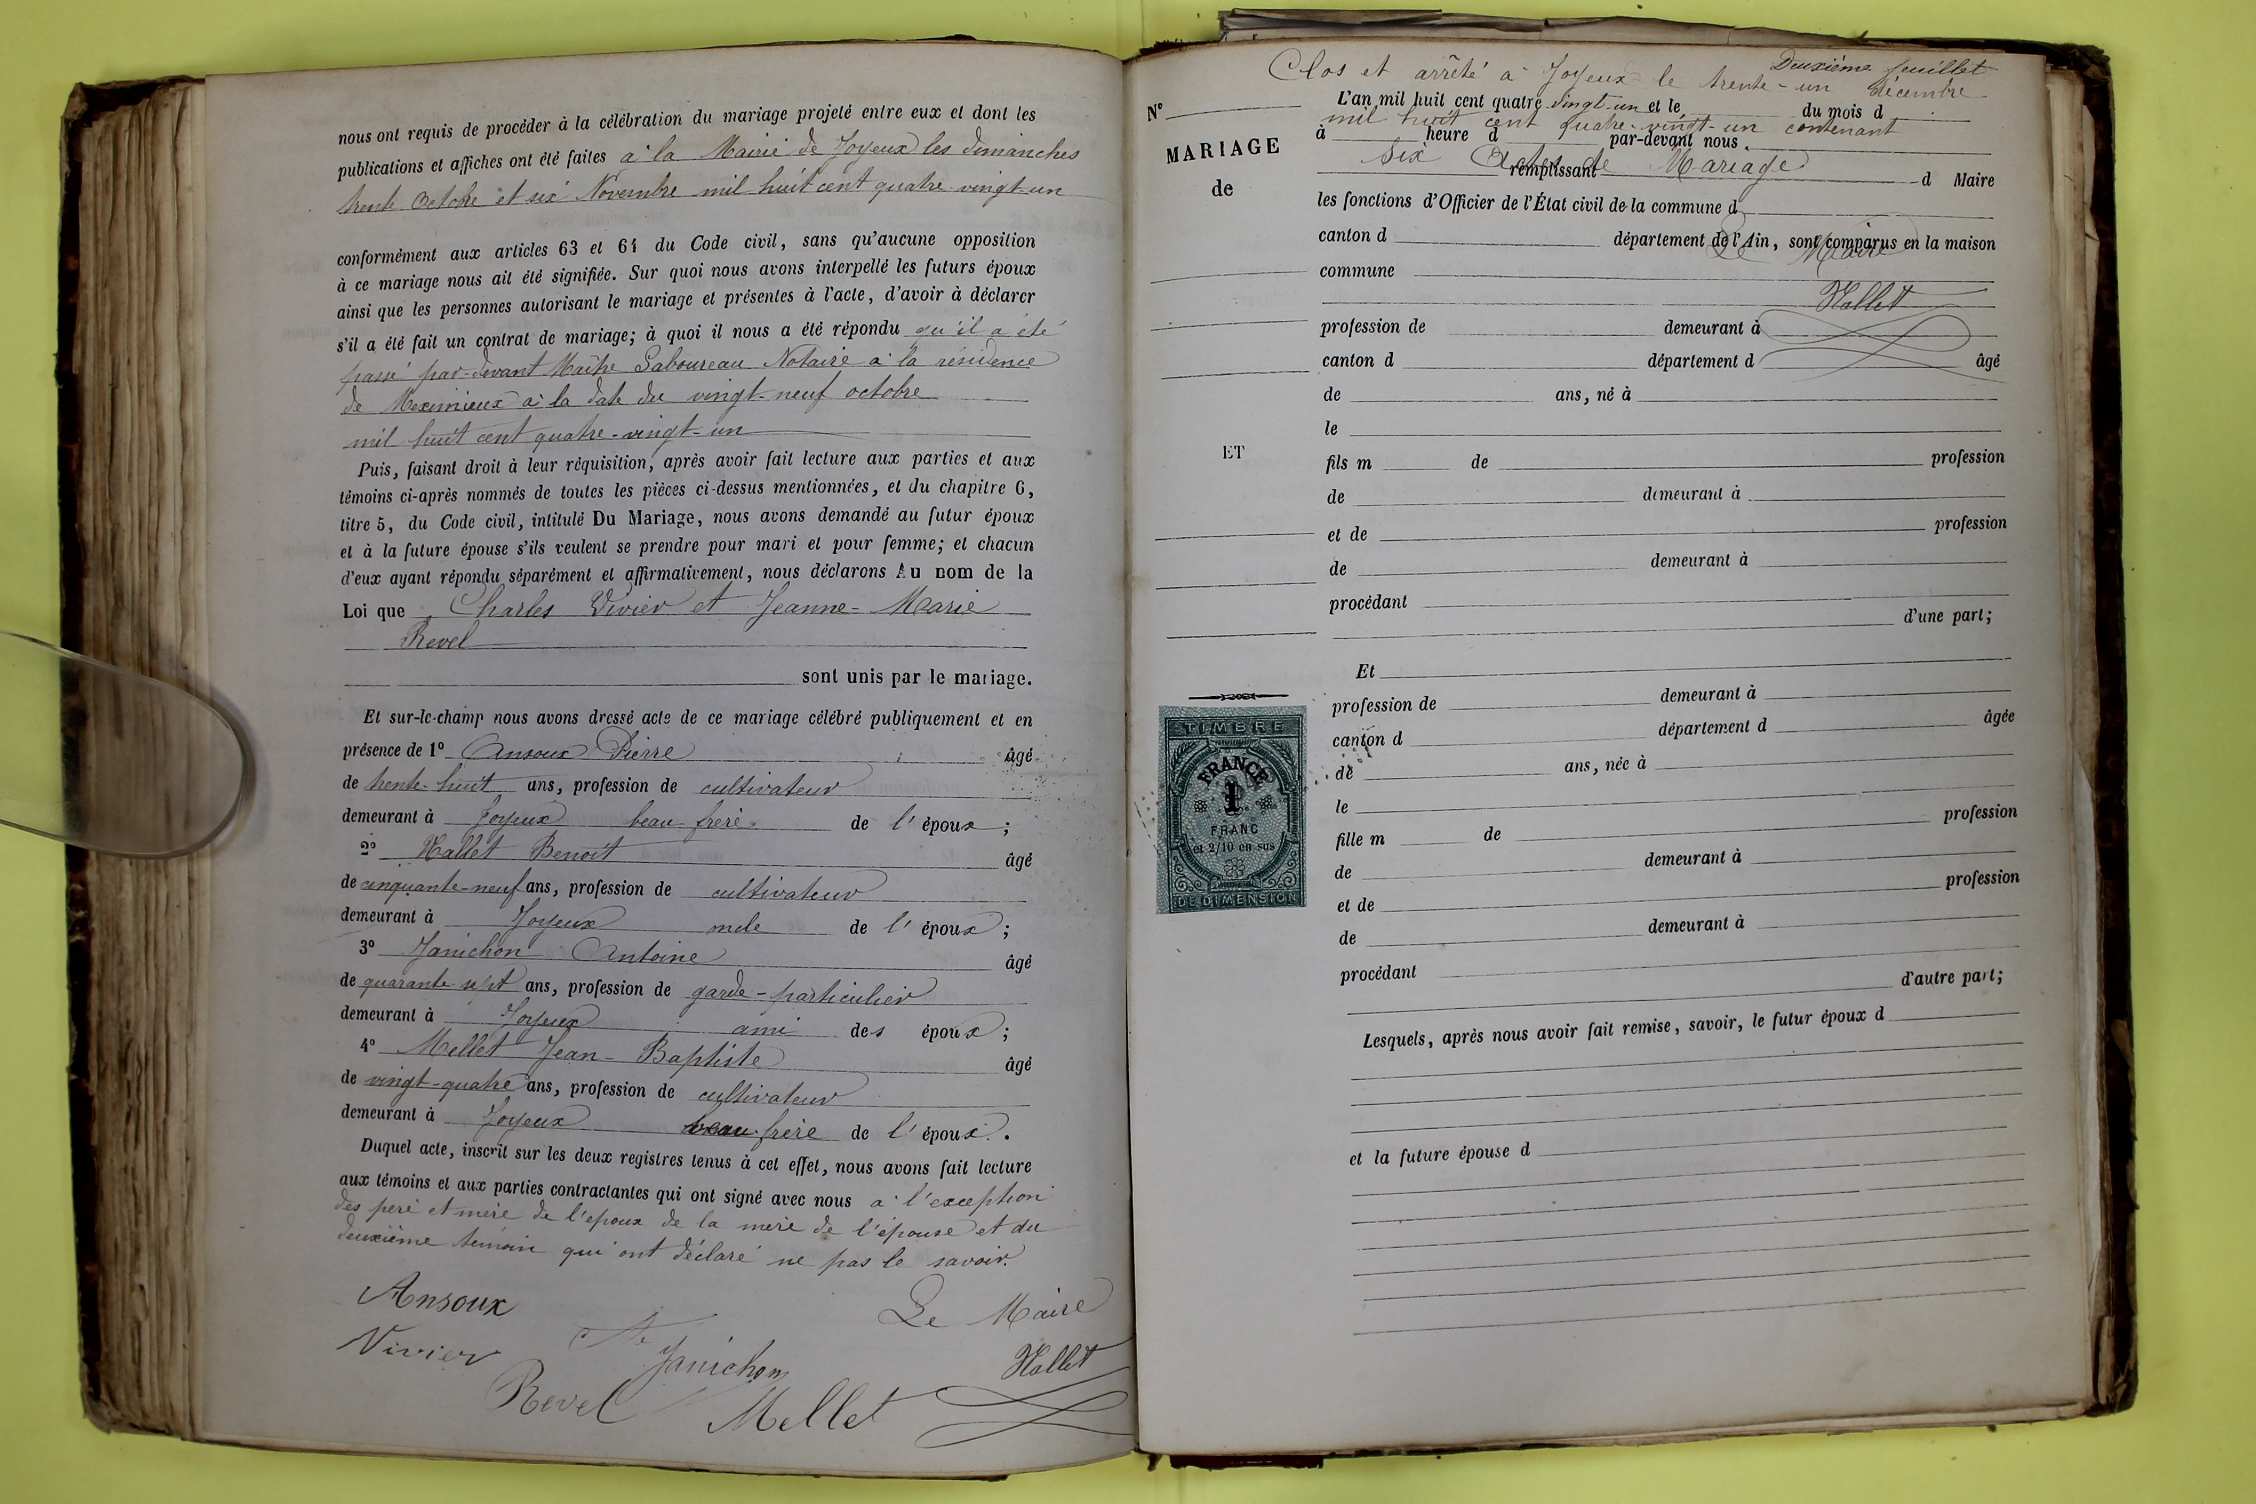 nous ont requis de procéder à la célébration du mariage projeté entre eux et dont les
publications et affiches ont été faites à la Mairie de Joyeux les dimanches
trente Octobre et six Novembre mil huit cent quatre-vingt-un
conformément aux articles 63 et 64 du Code civil, sans qu'aucune opposition
à ce mariage nous ait été signifiée. Sur quoi nous avons interpellé les futurs époux
ainsi que les personnes autorisant le mariage et présentes à l'acte, d'avoir à déclarer
s'il a été fait un contrat de mariage; à quoi il nous a été répondu qu'il a été
passé par-devant Maître Saboureau Notaire à la résidence
de Meximieux à la date du vingt-neuf octobre
mil huit cent quatre-vingt-un
Puis, faisant droit à leur réquisition, après avoir fait lecture aux parties et aux
témoins ci-après nommés de toutes les pièces ci-dessus mentionnées, et du chapitre 6,
titre 5, du Code civil, intitulé Du Mariage, nous avons demandé au futur époux
et à la future épouse s'ils veulent se prendre pour mari et pour femme; et chacun
d'eux ayant répondu séparément et affirmativement, nous déclarons Au nom de la
Loi que Charles Vivier et Jeanne-Marie
Revel
sont unis par le mariage.
Et sur-le-champ nous avons dressé acte de ce mariage célébré publiquement et en
présence de 1° Ansoux Pierre âgé
de trente-huit ans, profession de cultivateur
demeurant à Joyeux beau-frère de l'époux;
2° Hallet Benoit âgé
de cinquante-neuf ans, profession de cultivateur
demeurant à Joyeux oncle de l'époux;
3° Janichon Antoine âgé
de quarante-sept ans, profession de garde-particulier
demeurant à Joyeux ami des époux;
4° Mellet Jean-Baptiste âgé
de vingt-quatre ans, profession de cultivateur
demeurant à Joyeux beau-frère de l'époux.
Duquel acte, inscrit sur les deux registres tenus à cet effet, nous avons fait lecture
aux témoins et aux parties contractantes qui ont signé avec nous à l'exception
des père et mère de l'époux de la mère de l'épouse et du
deuxième témoin qui ont déclaré ne pas le savoir.
Ansoux
Le Maire
Vivier
Janichon
Hallet
Revel
Mellet
Deuxième feuillet
Clos et arrêté à Joyeux le trente-un décembre
N° L'an mil huit cent quatre-vingt-un et le du mois d
mil huit cent quatre-vingt-un contenant
à heure d par-devant nous
MARIAGE
six Actes de Mariage
remplissant d Maire
de
les fonctions d'Officier de l'État civil de la commune d
canton d département de l'Ain, sont comparus en la maison
Le Maire
commune
Hallet
profession de demeurant à
canton d département d âgé
de ans, né à
le
ET
fils m de profession
de demeurant à
et de profession
de demeurant à
procédant
d'une part;
Et
profession de demeurant à
canton d département d âgée
de ans, née à
le
fille m de profession
de demeurant à
et de profession
de demeurant à
procédant
d'autre part;
TIMBRE
FRANCE
1
FRANC
et 2/10 en sus
DE DIMENSION
Lesquels, après nous avoir fait remise, savoir, le futur époux d
et la future épouse d